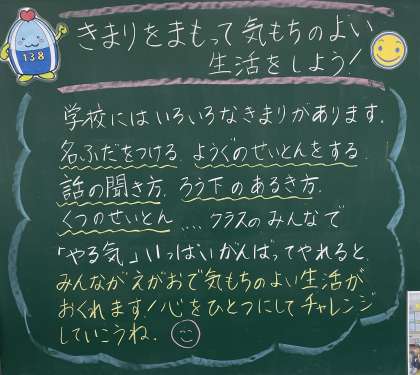 138
きまりをまもって気もちのよい
生活をしよう!
学校にはいろいろなきまりがあります.
名ふだをつける. ようぐのせいとんをする.
話の聞き方. ろう下のあるき方.
くつのせいとん .... クラスのみんなで
「やる気」いっぱいがんばってやれると.
みんながえがおで気もちのよい生活が
おくれます!心をひとつにしてチャレンジ
していこうね.